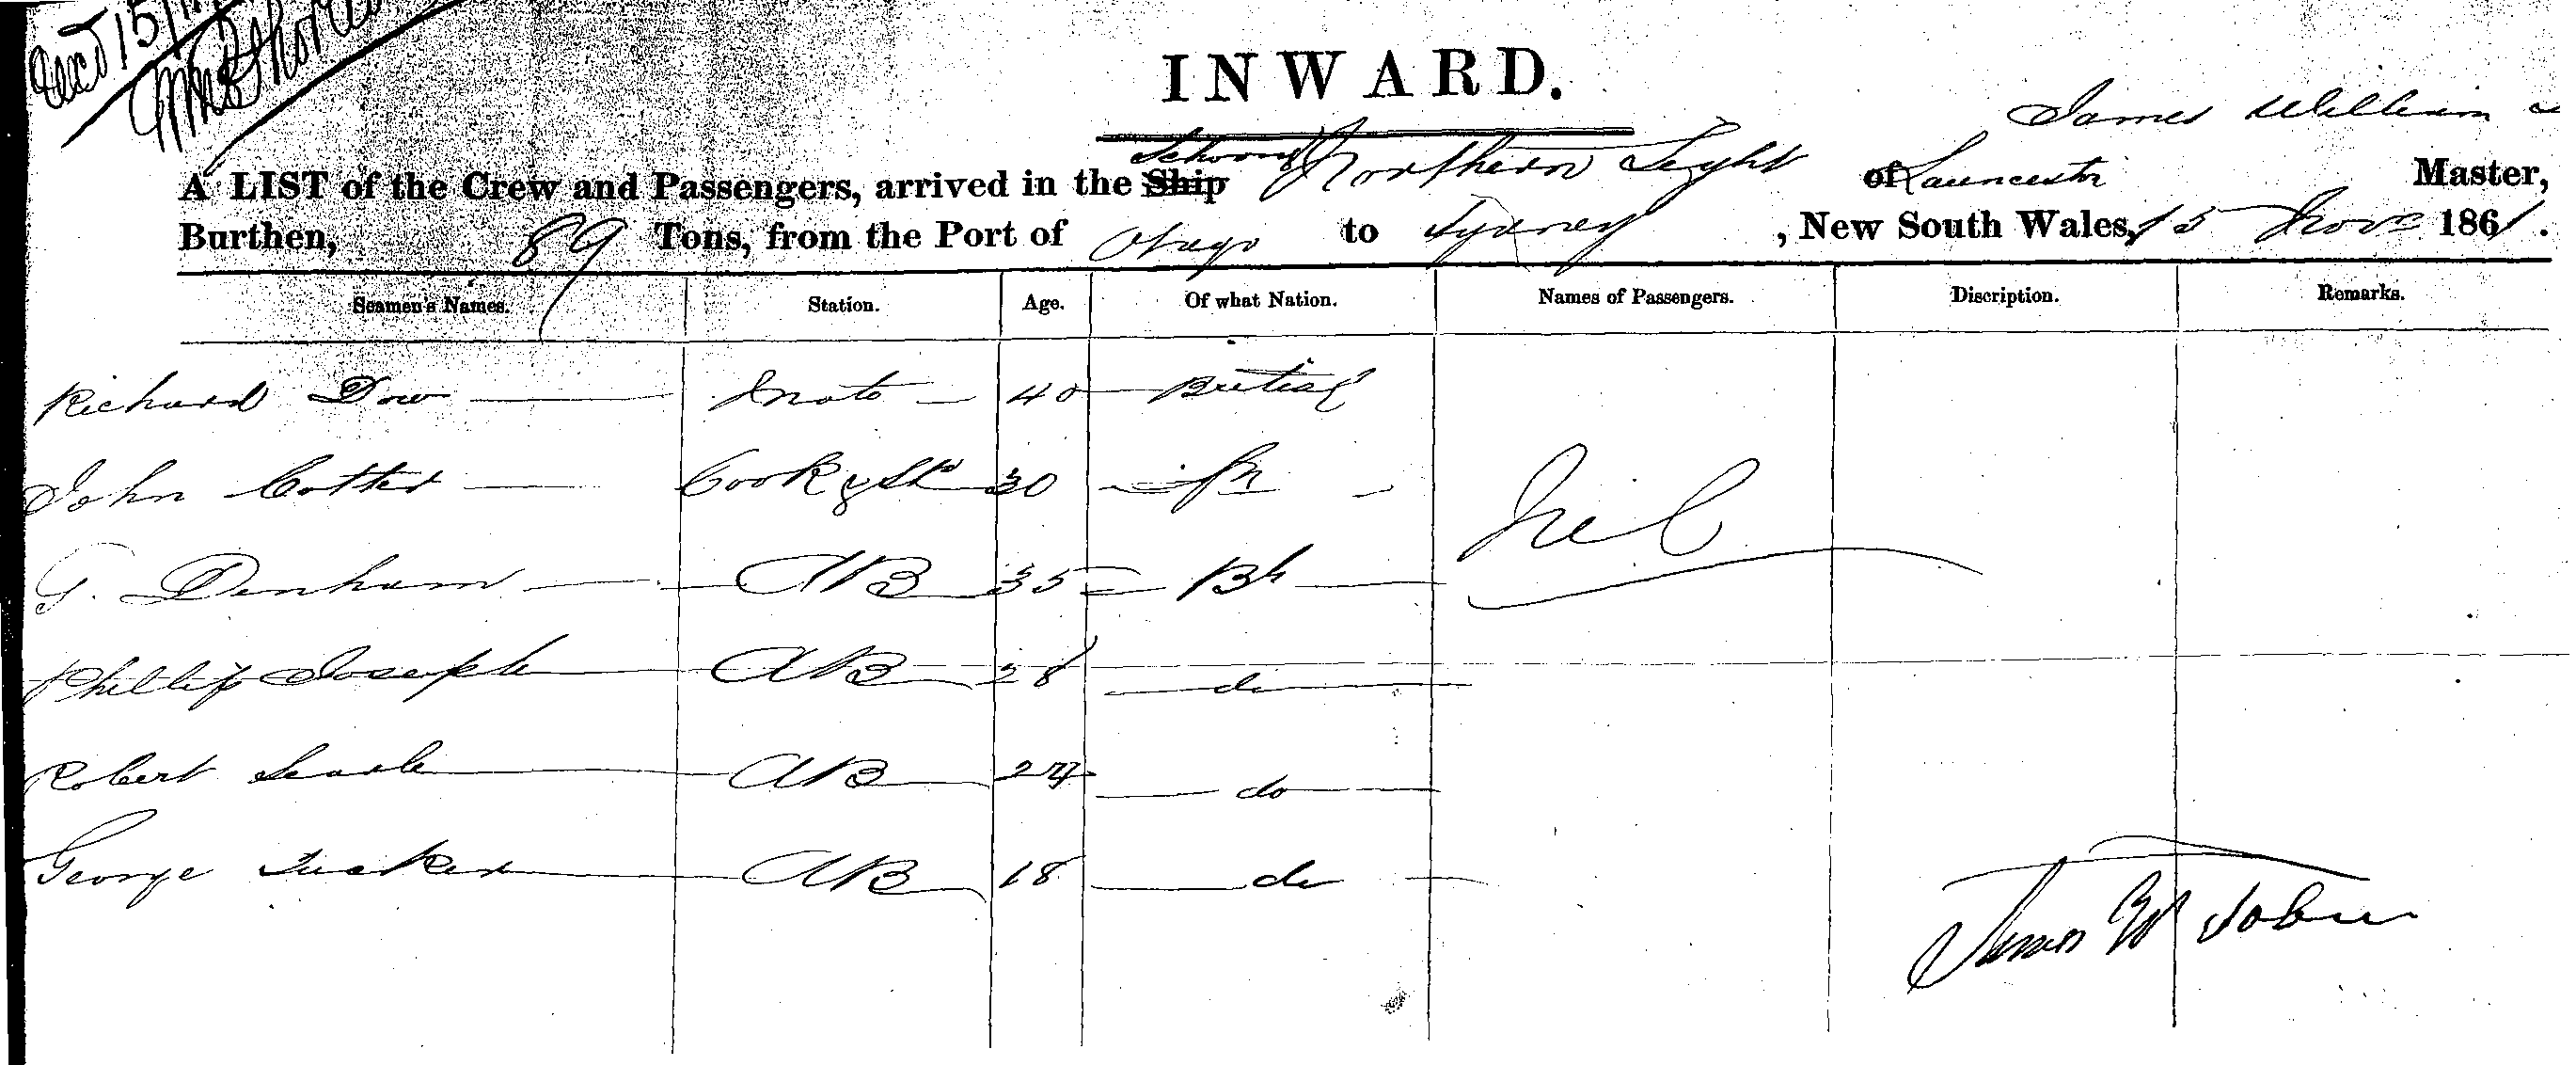 INWARD.
James William
A LIST of the Crew and Passengers, arrived in the Ship Schooner Northern Light of Launceston Master,
Burthen, 89 Tons, from the Port of Otago to Sydney , New South Wales, 15 Nov 1861.
Seamen's Names. Station. Age. Of what Nation. Names of Passengers. Discription. Remarks.
Richard Dow Mate 40 British
John Cotter Cook & St 30
Nil
G. Denham AB 35 Bh
Phillip Joseph AB 28 do
Robert Searle AB 24 do
George Tucker AB 18 do
James W